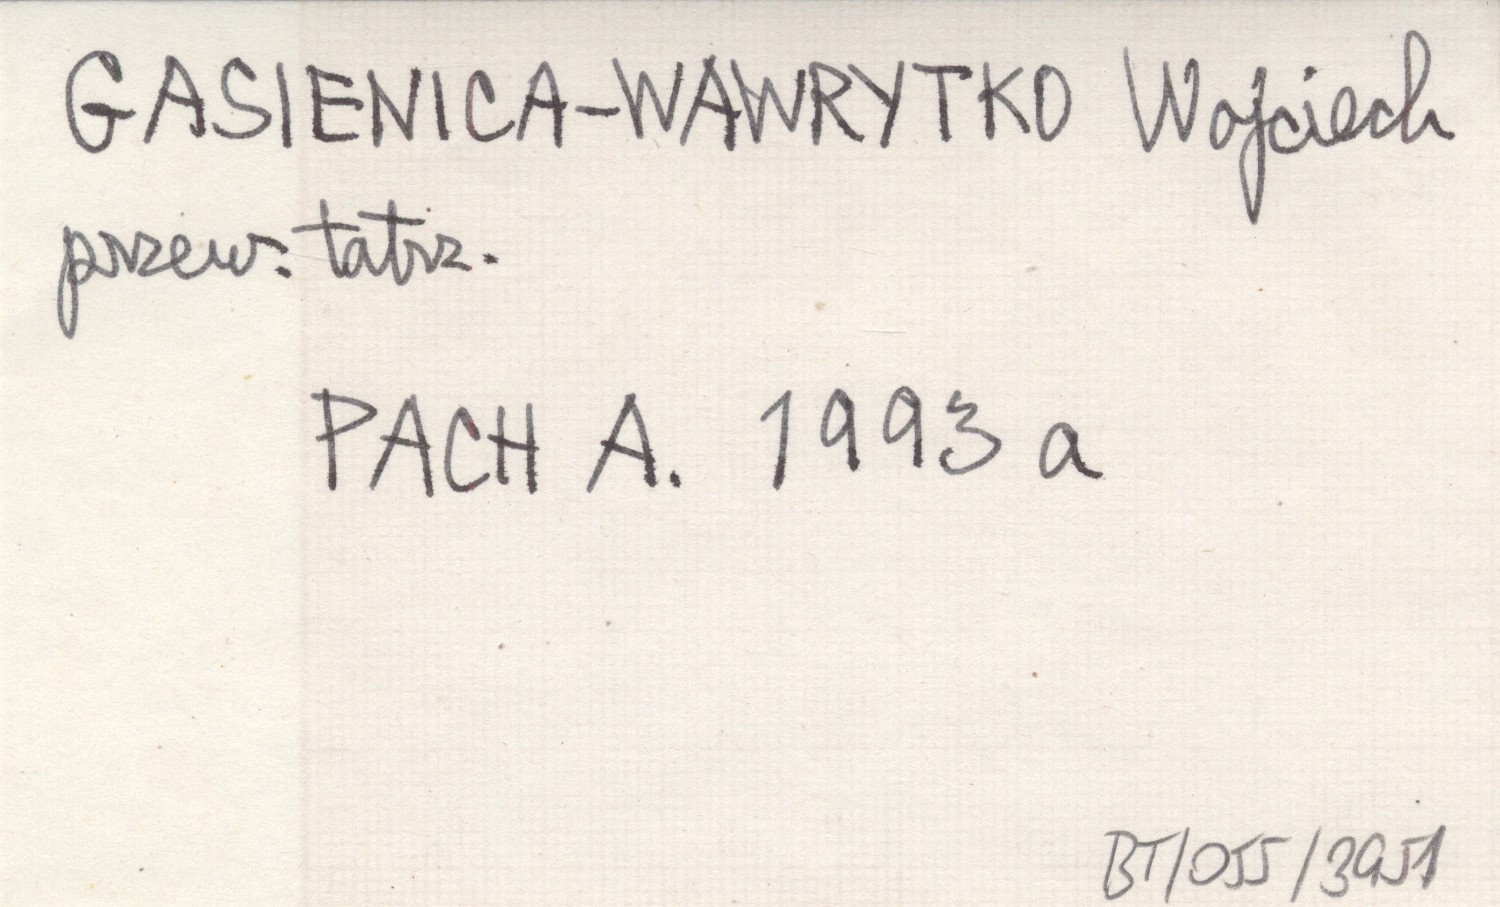 GASIENICA-WAWRYTKO Wojciech
przew. tatrz.
PACH A. 1993 a
BT/055/3951